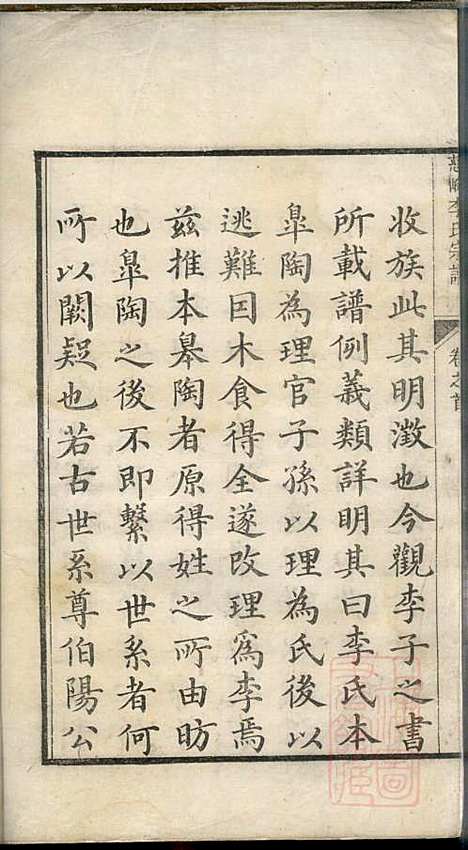 李氏宗譜
卷之首
收族此其明澂也今觀李子之書
所載譜例義類詳明其曰李氏本
臯陶為理官子孫以理為氏後以
逃難因木食得全遂改理爲李焉
茲推本皋陶者原得姓之所由昉
也臯陶之後不即繫以世系者何
所以闕疑也若古世系尊伯陽公